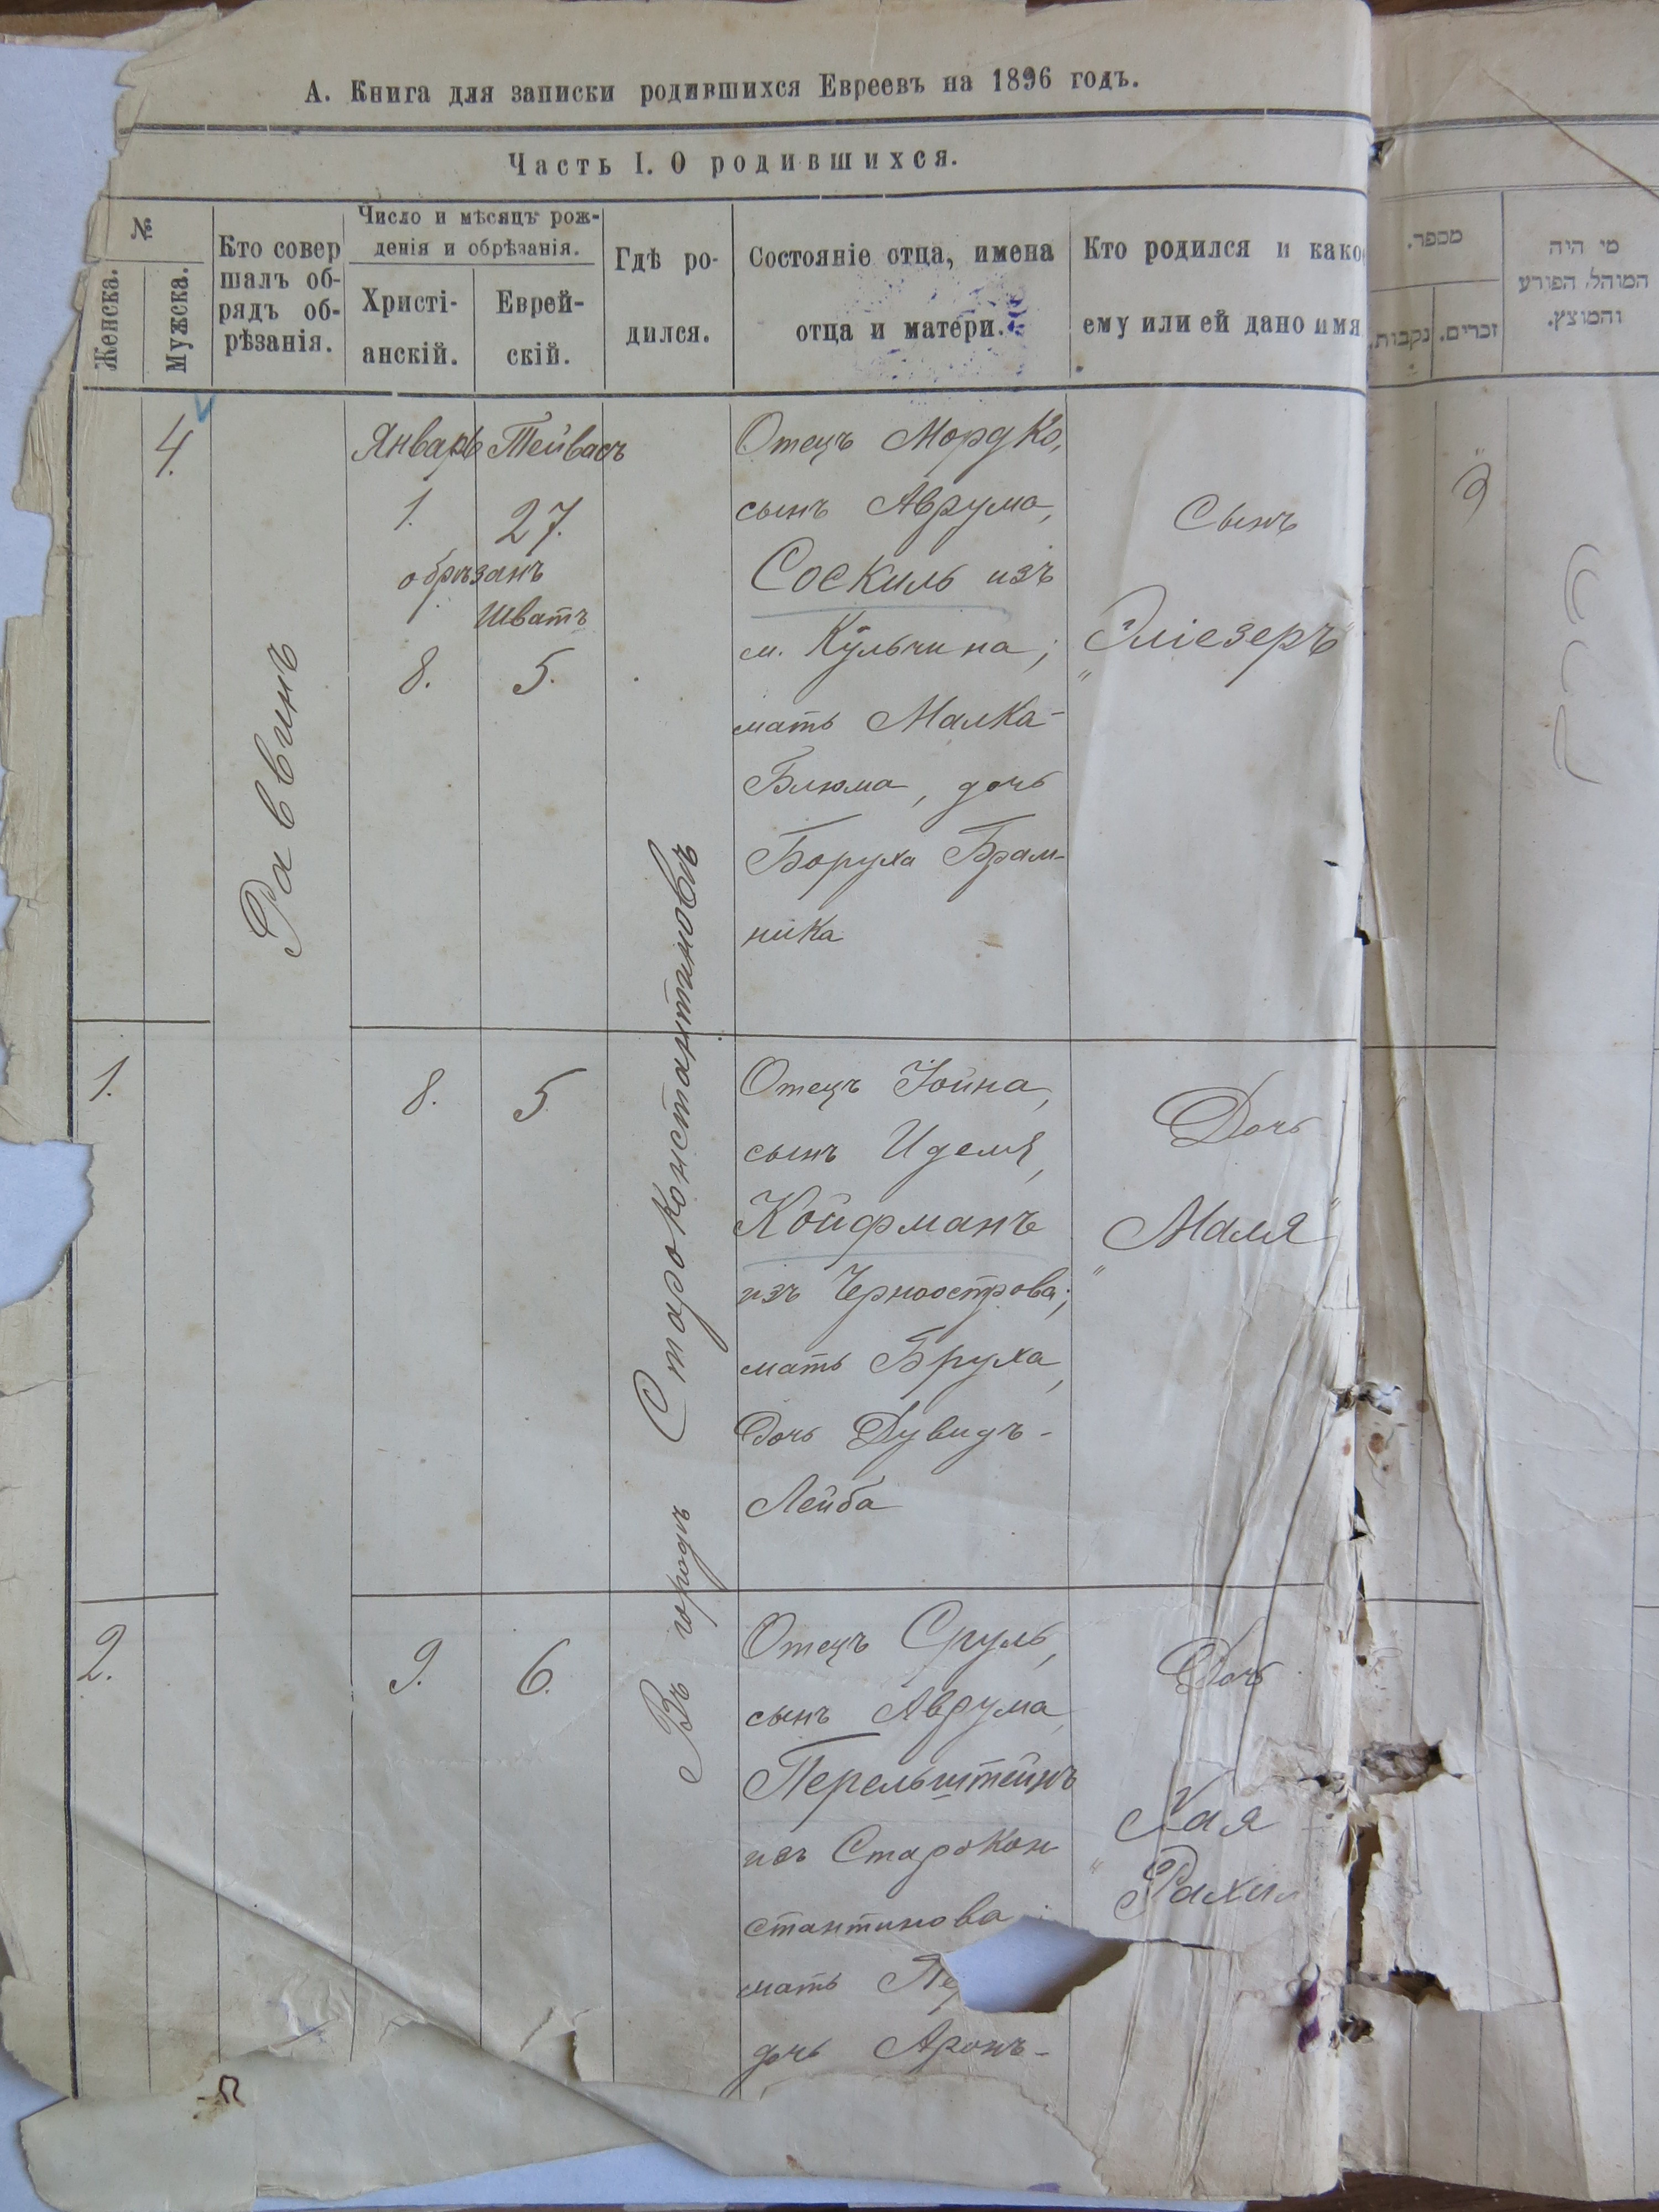 А. Книга для записки родившихся Евреевъ на 1896 годъ.
Часть I. О родившихся.
№
Женска.
Мужска.
Кто совер
шалъ об-
рядъ об-
рѣзанія.
Число и мѣсяцъ рож-
денія и обрѣзанія.
Христі-
анскій.
Еврей-
скій.
Гдѣ ро-
дился.
Состояніе отца, имена
отца и матери.
Кто родился и како
ему или ей дано имя
מספר.
נקבות.
זכרים.
מי היה
המוהל הפורע
והמוצץ.
4.
Раввинъ
Январь Тейвасъ
1. 27.
обрѣзанъ
Шватъ
8. 5.
Въ городѣ Староконстантиновѣ
Отецъ Мордко,
сынъ Аврума,
Соскиль изъ
м. Кульчина;
мать Малка-
Блюма, дочь
Боруха Брам-
ника
Сынъ
„Эліезеръ"
1.
8. 5
Отецъ Іойна,
сынъ Иделя,
Койфманъ
изъ Черноострова;
мать Бруха,
дочь Дувидъ-
Лейба
Дочь
„Маля"
2.
9. 6.
Отецъ Сруль,
сынъ Аврума,
Перельштейнъ
изъ Старокон
стантинова
мать Пе
дочь Аронъ-
Дочь
Хая
„Рахи